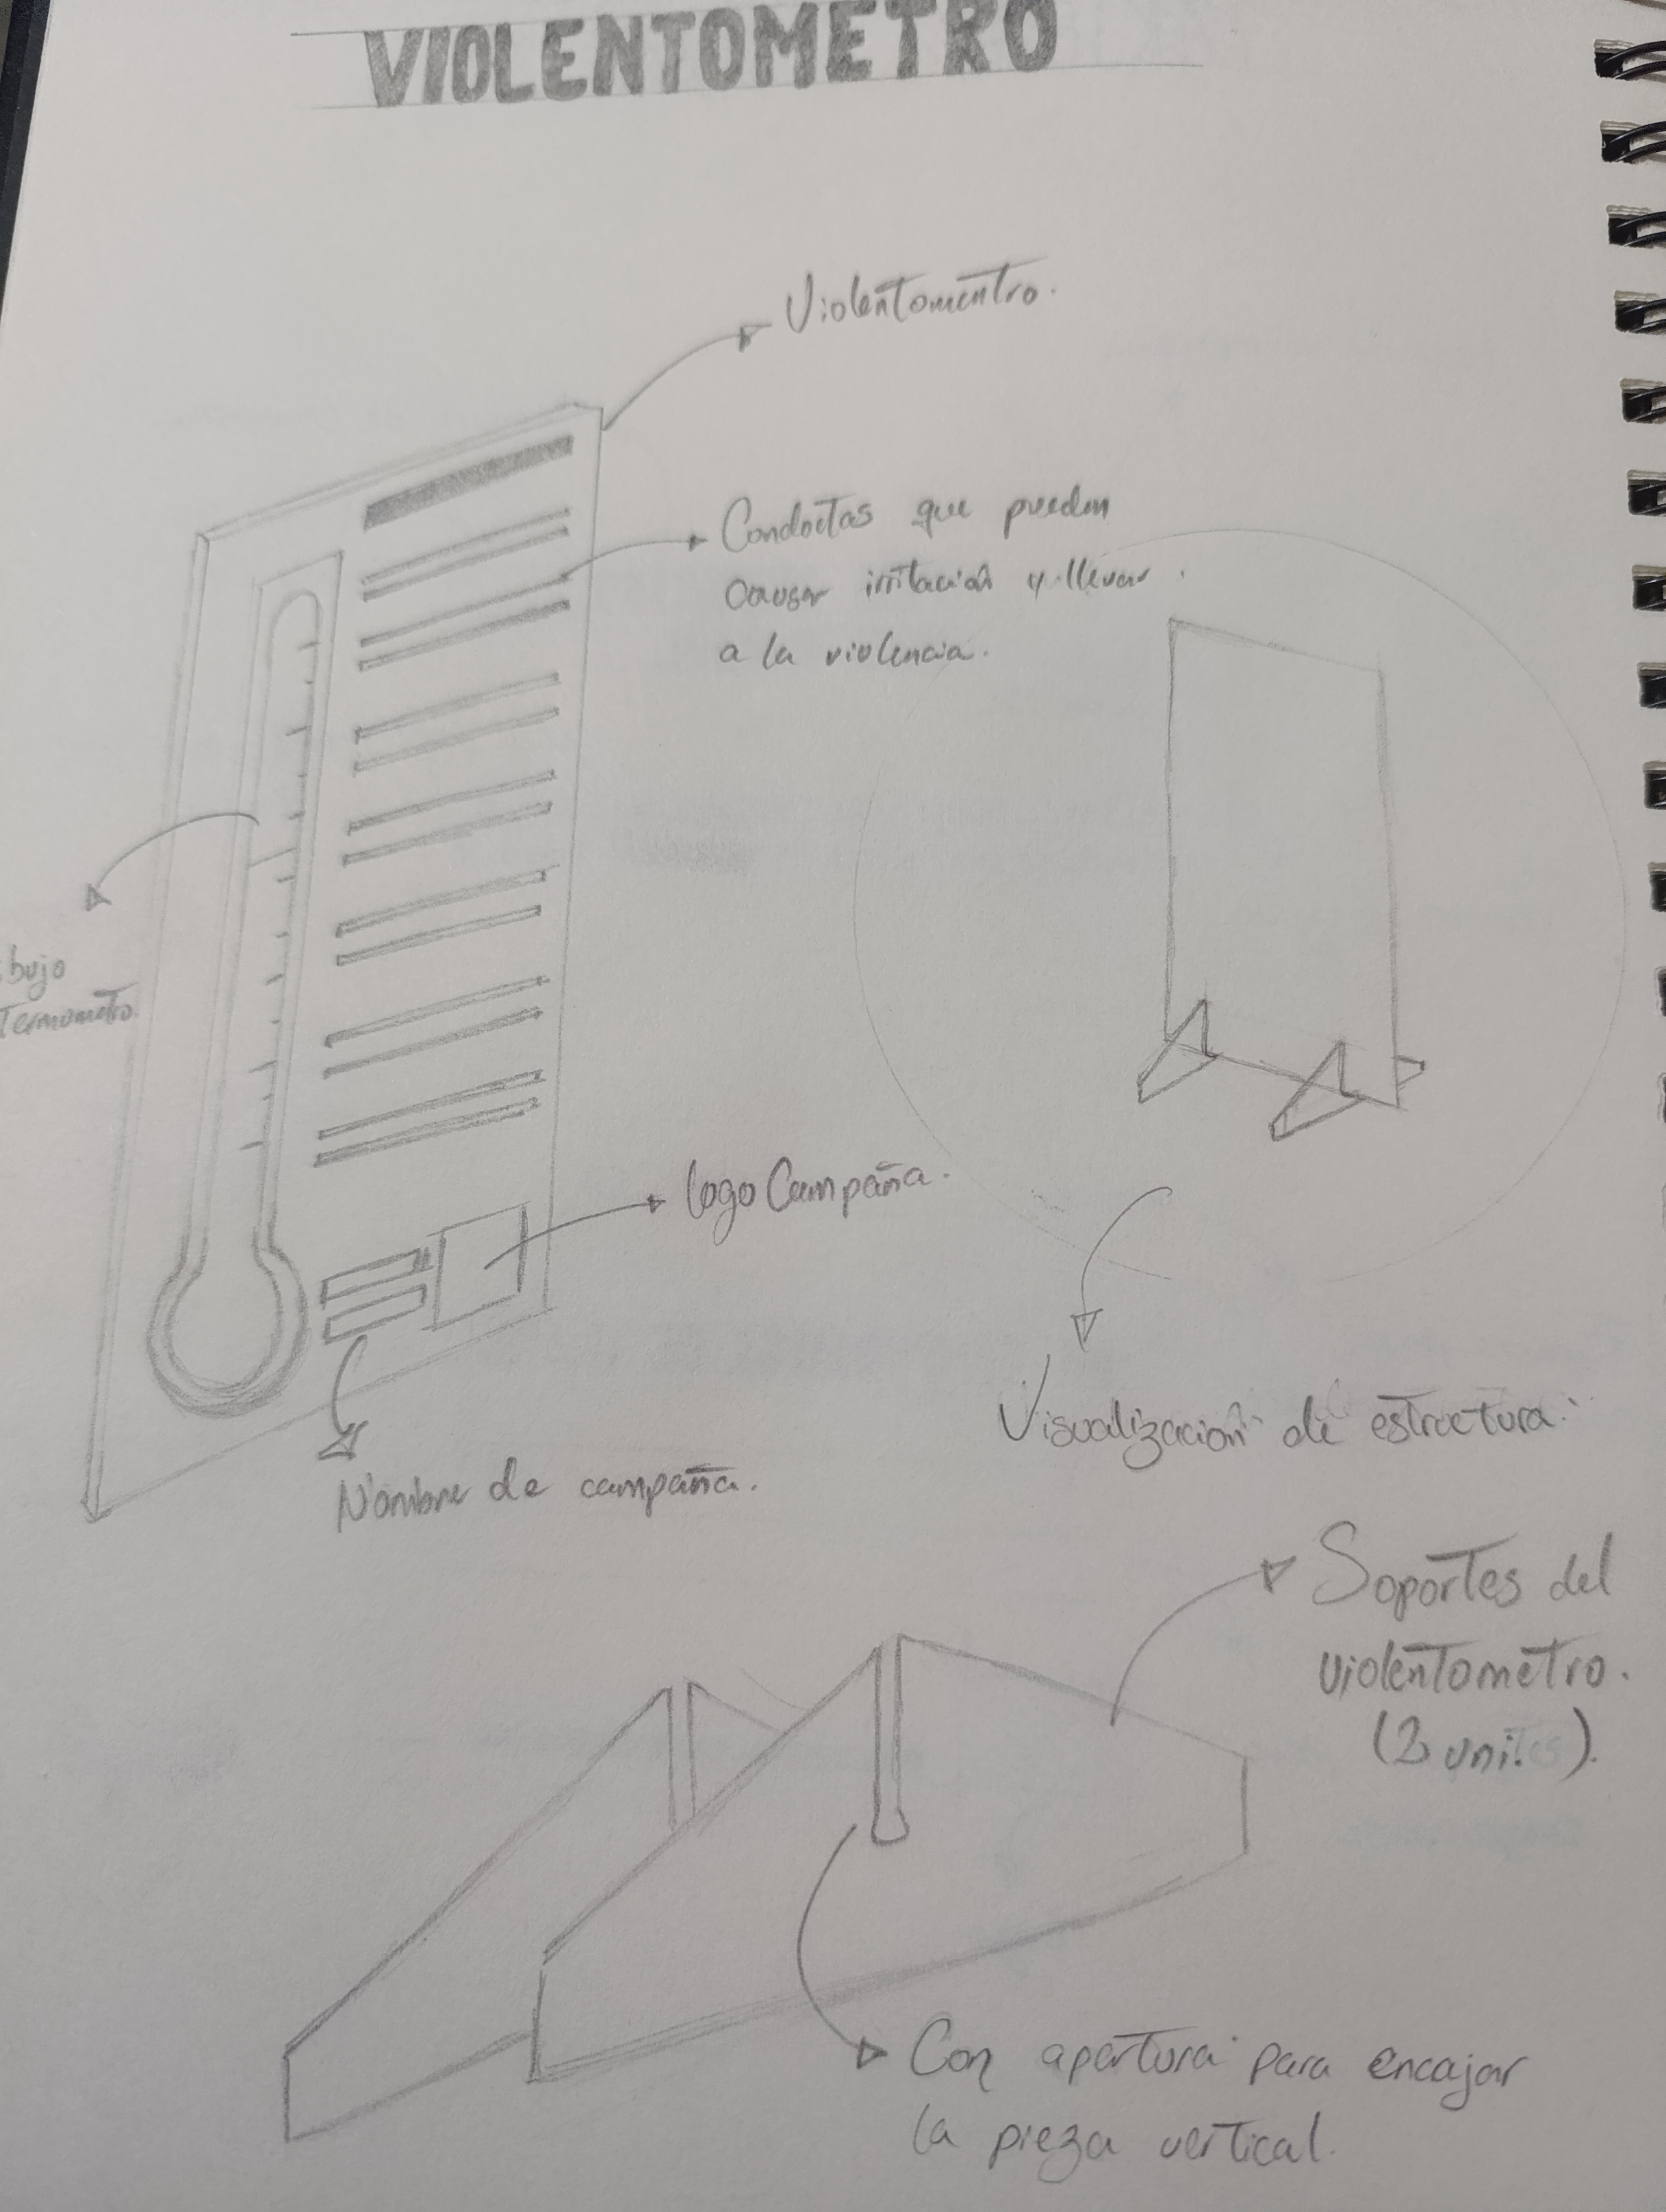 VIOLENTOMETRO
Violentomentro.
Conductas que pueden
causar irritación y llevar
a la violencia.
bujo
Termometro.
logo Campaña.
Nombre de campaña.
Visualización de estructura.
Soportes del
violentometro.
(2 uni.)
Con apertura para encajar
la pieza vertical.